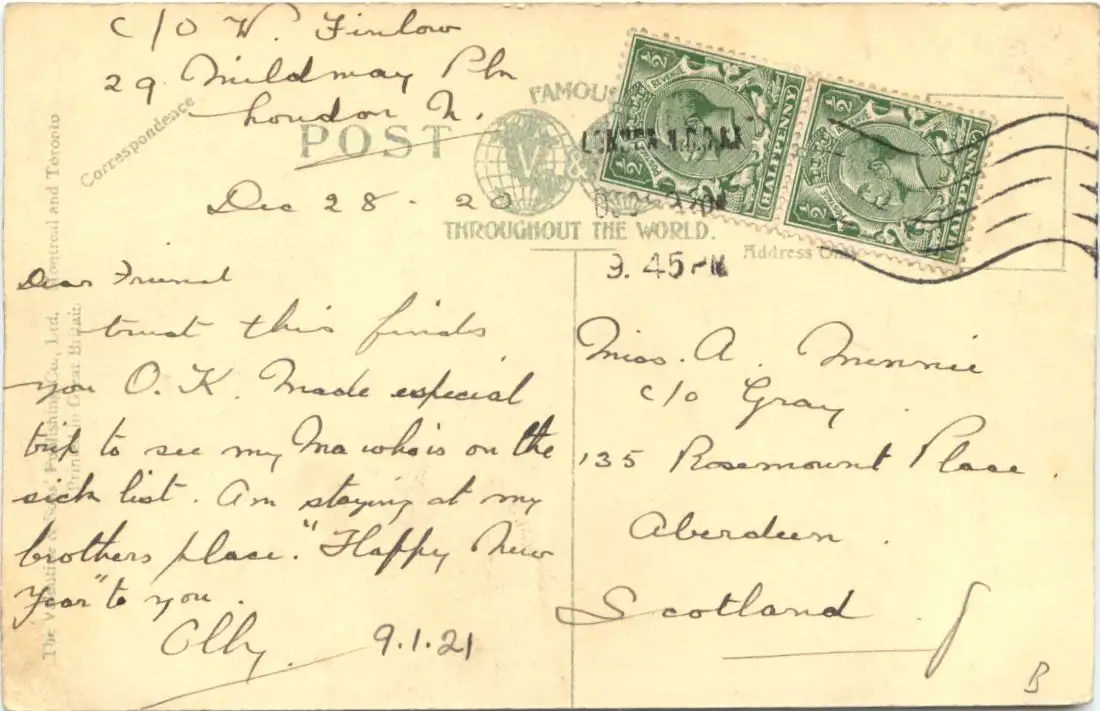 c/o W. Finlow
29 Mildmay Pk
London N.
Correspondence
POST
FAMOUS
V. &
THROUGHOUT THE WORLD.
Address Only
½ REVENUE ½
½ POSTAGE
HALFPENNY
½ ½
½ POSTAGE
HALFPENNY
LONDON
DEC
9. 45 PM
Dec 28 - 20
Dear Friend
trust this finds
you O.K. Made especial
trip to see my Ma who is on the
sick list. Am staying at my
brothers place. "Happy New
Year" to you.
Olly. 9.1.21
Miss. A. Minnie
c/o Gray.
135 Rosemount Place.
Aberdeen.
Scotland
B
The Valentine & Sons' Publishing Co., Ltd. Montreal and Toronto
Printed in Great Britain